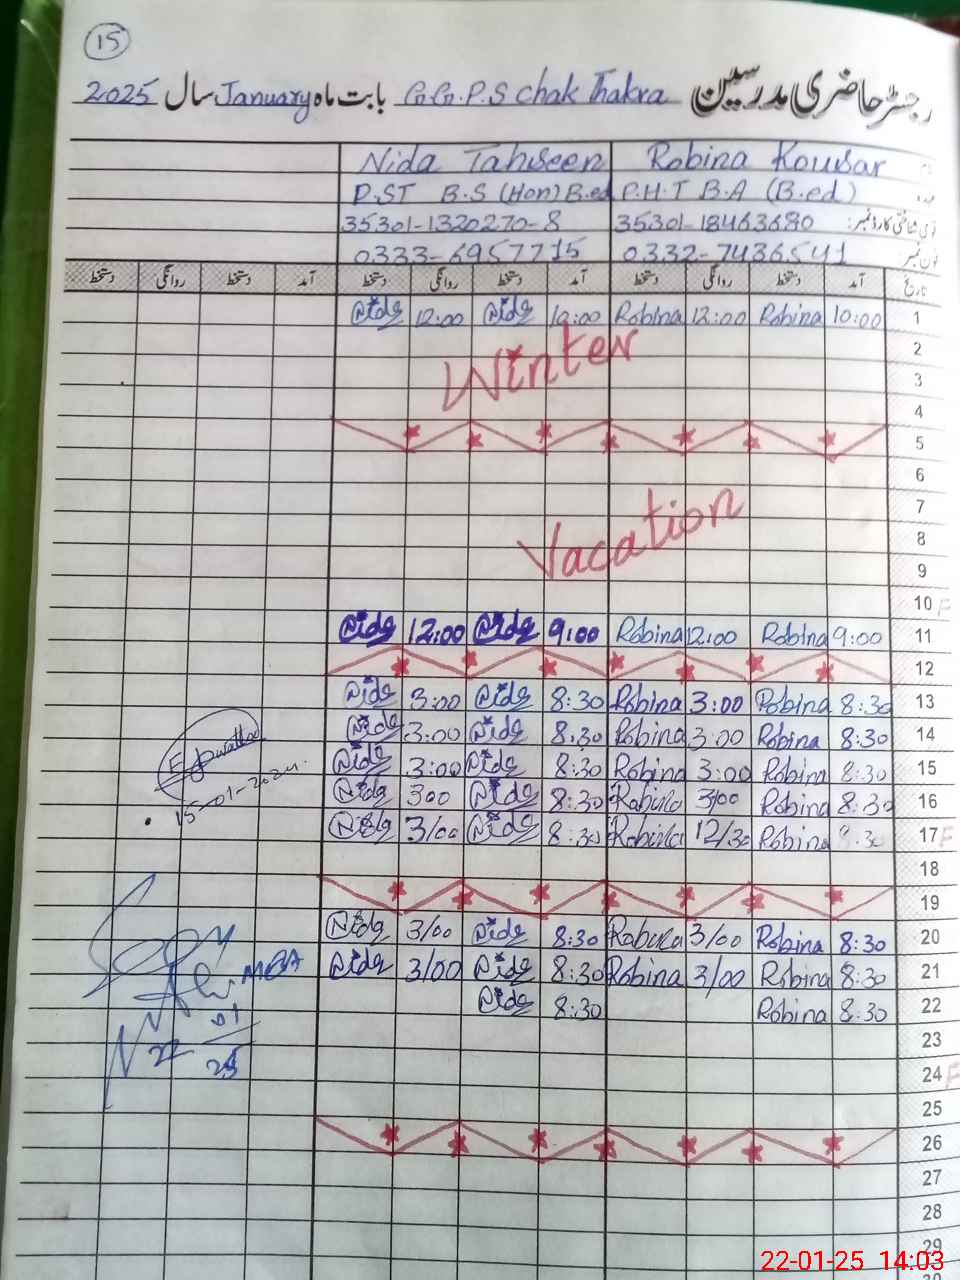 15
رجسٹر حاضری مدرسین G.G.P.S Chak Thakra بابت ماہ January سال 2025
Nida Tahseen Robina Kousar
P.ST B.S (Hon) B.ed P.H.T B.A (B.ed)
قومی شناختی کارڈ نمبر: 35301-18463680 35301-1320270-8
فون نمبر: 0332-7436541 0333-6957715
تاریخ آمد دستخط روانگی دستخط آمد دستخط روانگی دستخط آمد دستخط روانگی دستخط
Nida 12:00 Nida 10:00 Robina 12:00 Robina 10:00 1
2
Winter
3
4
5
6
7
Vacation
8
9
10 F
Nida 12:00 Nida 9:00 Robina 12:00 Robina 9:00 11
12
Nida 3:00 Nida 8:30 Robina 3:00 Robina 8:30 13
Nida 3:00 Nida 8:30 Robina 3:00 Robina 8:30 14
Nida 3:00 Nida 8:30 Robina 3:00 Robina 8:30 15
15-01-2024
Nida 300 Nida 8:30 Robina 3/00 Robina 8:30 16
Nida 3/00 Nida 8:30 Robina 12/30 Robina 8:30 17 F
18
19
Nida 3/00 Nida 8:30 Robina 3/00 Robina 8:30 20
Nida 3/00 Nida 8:30 Robina 3/00 Robina 8:30 21
Nida 8:30 Robina 8:30 22
22 01 25
23
24 F
25
26
27
28
29
22-01-25 14:03